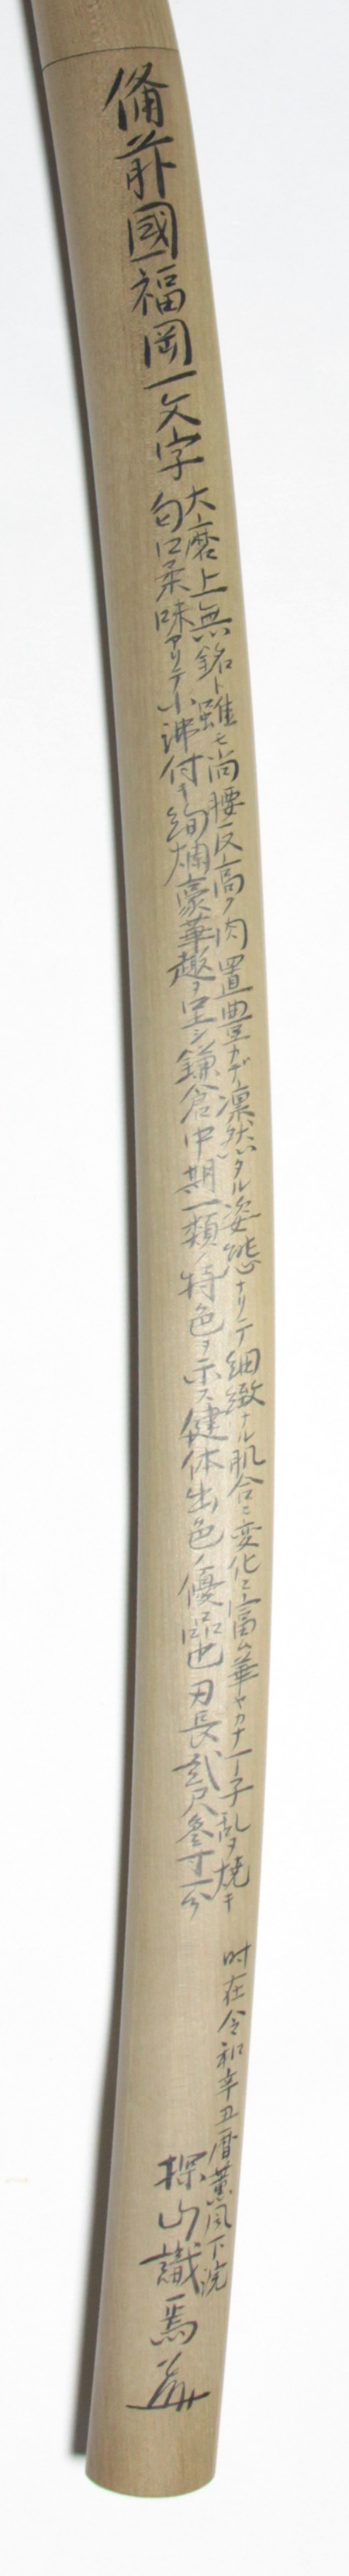 備前國福岡一文字
大磨上無銘ト雖モ尚腰反高ク肉置豊カデ凛然タル姿態ナリテ細緻ナル肌合ニ変化ニ富ム華ヤカナ丁子乱ヲ焼キ
匂口柔味アリテ小沸付キ絢爛豪華趣ヲ呈シ鎌倉中期一類ノ特色ヲ示ス健体出色ノ優品也刃長貳尺参寸一分
时在令和辛丑暦薫風下浣
探山識焉